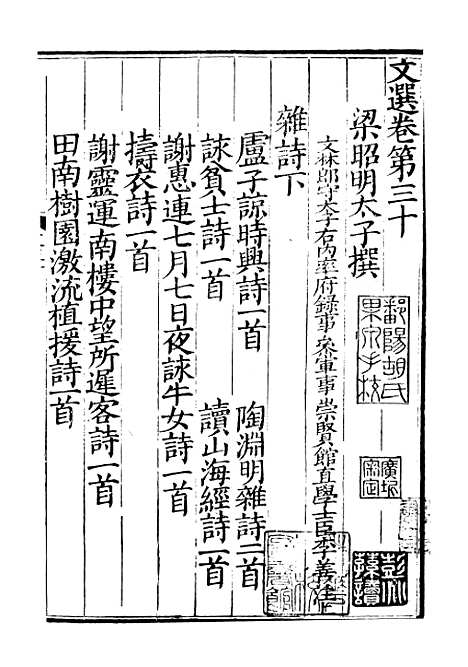 文選卷第三十
梁昭明太子撰
文林郎守太子右內率府録事參軍事崇賢館直學士臣李善注
雜詩下
盧子諒時興詩一首
陶淵明雜詩二首
詠貧士詩一首
讀山海經詩一首
謝惠連七月七日夜詠牛女詩一首
擣衣詩一首
謝靈運南樓中望所遲客詩一首
田南樹園激流植援詩一首
鄱陽胡氏
果泉手校